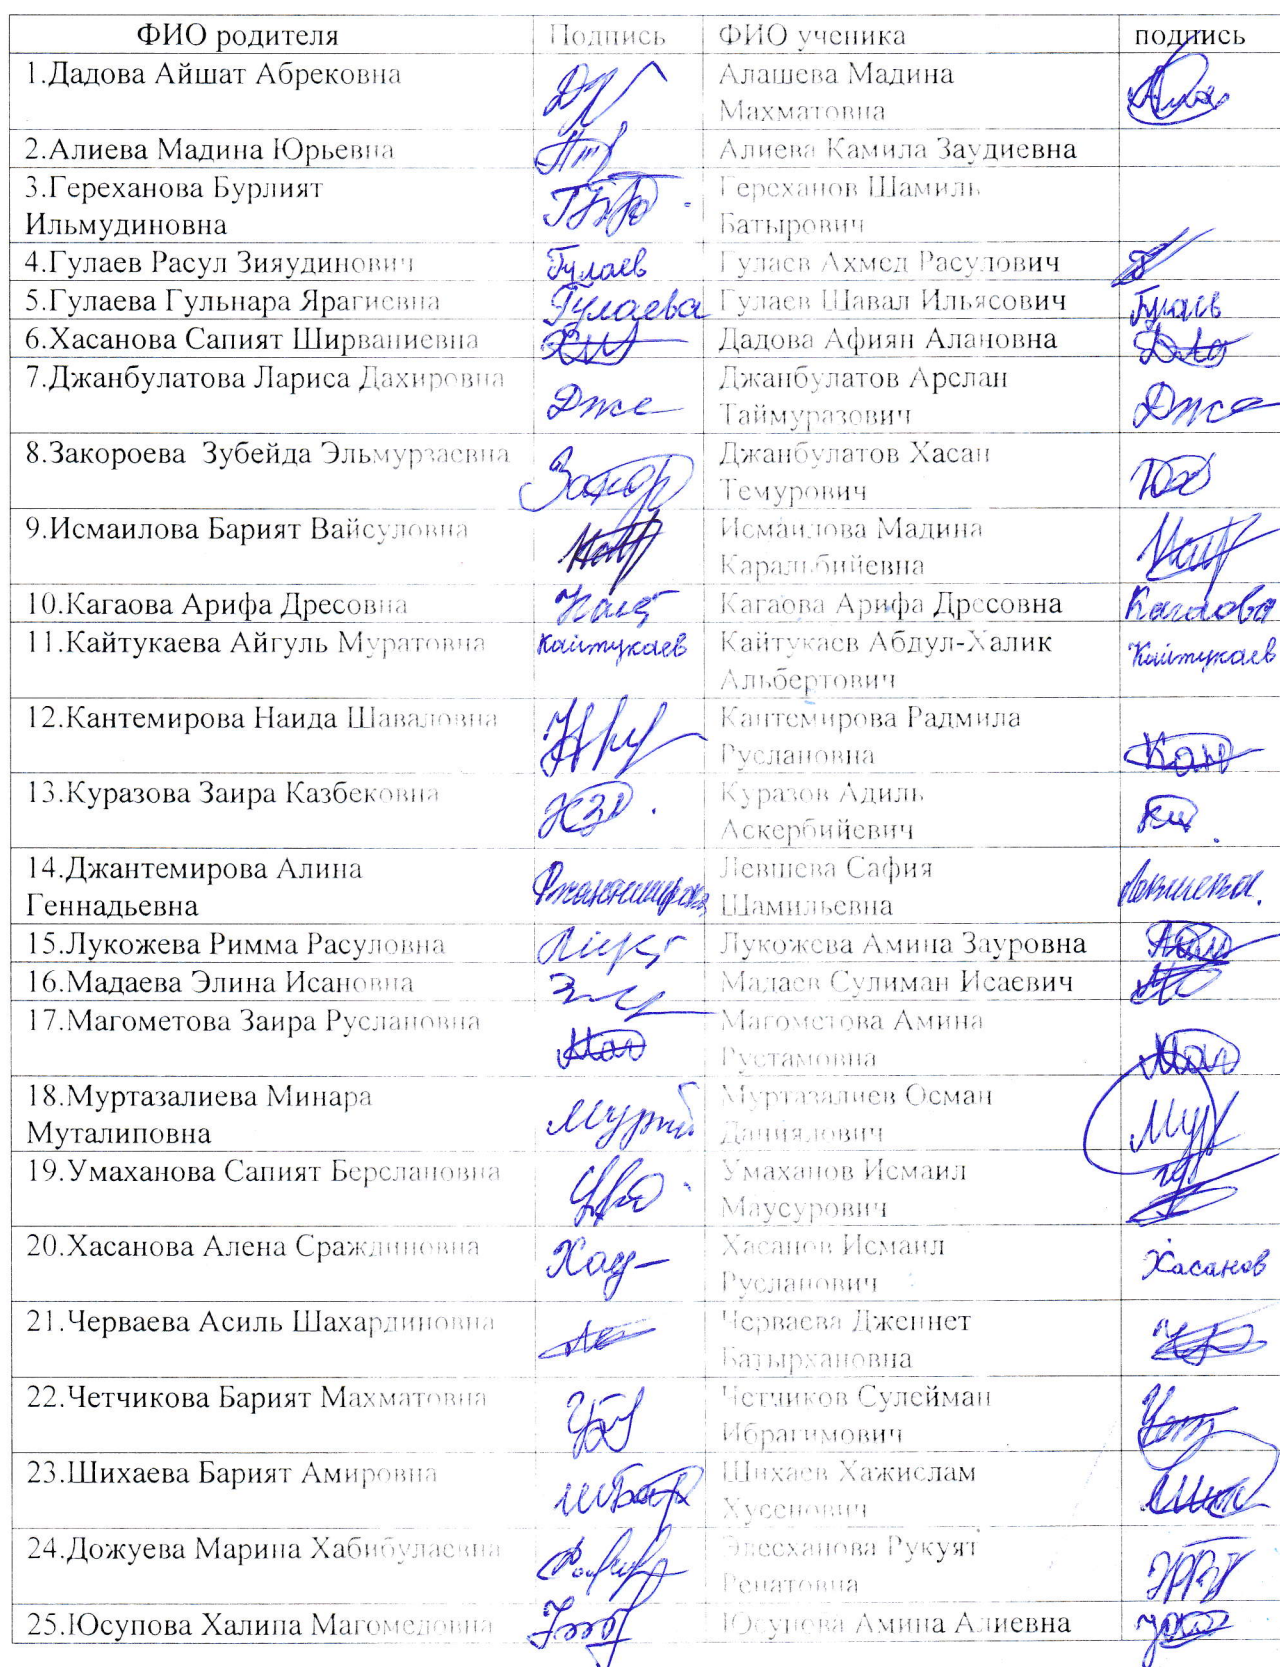 ФИО родителя Подпись ФИО ученика подпись
1.Дадова Айшат Абрековна Алашева Мадина
Махматовна
2.Алиева Мадина Юрьевна Алиева Камила Заудиевна
3.Гереханова Бурлият Гереханов Шамиль
Ильмудиновна Батырович
4.Гулаев Расул Зияудинович Гулаев Гулаев Ахмед Расулович
5.Гулаева Гульнара Ярагиевна Гулаева Гулаев Шавал Ильясович Гулаев
6.Хасанова Сапият Ширваниевна Дадова Афиян Алановна
7.Джанбулатова Лариса Дахировна Джанбулатов Арслан
Дже Таймуразович Дже
8.Закороева Зубейда Эльмурзаевна Джанбулатов Хасан
Темурович
9.Исмаилова Барият Вайсуловна Исмаилова Мадина
Каральбийевна
10.Кагаова Арифа Дресовна Кагаова Арифа Дресовна Кагаова
11.Кайтукаева Айгуль Муратовна Кайтукаев Кайтукаев Абдул-Халик Кайтукаев
Альбертович
12.Кантемирова Наида Шаваловна Кантемирова Радмила
Руслановна Кан
13.Куразова Заира Казбековна Куразов Адиль
Аскербийевич
14.Джантемирова Алина Левшева Сафия
Геннадьевна Джантемирова Шамильевна Левшева.
15.Лукожева Римма Расуловна Лукожева Амина Зауровна
16.Мадаева Элина Исановна Мадаев Сулиман Исаевич
17.Магометова Заира Руслановна Магометова Амина
Маг Рустамовна Маг
18.Муртазалиева Минара Муртазалиев Осман
Муталиповна Даниялович Мур
19.Умаханова Сапият Берслановна Умаханов Исмаил
Маусурович
20.Хасанова Алена Сраждиновна Хасанов Исмаил Хасанов
Русланович
21.Черваева Асиль Шахардиновна Черваева Дженнет
Батырхановна
22.Четчикова Барият Махматовна Четчиков Сулейман
Ибрагимович
23.Шихаева Барият Амировна Шихаев Хажислам
Хусенович
24.Дожуева Марина Хабибулаевна Элесханова Рукуят
Ренатовна
25.Юсупова Халипа Магомедовна Юсупова Амина Алиевна